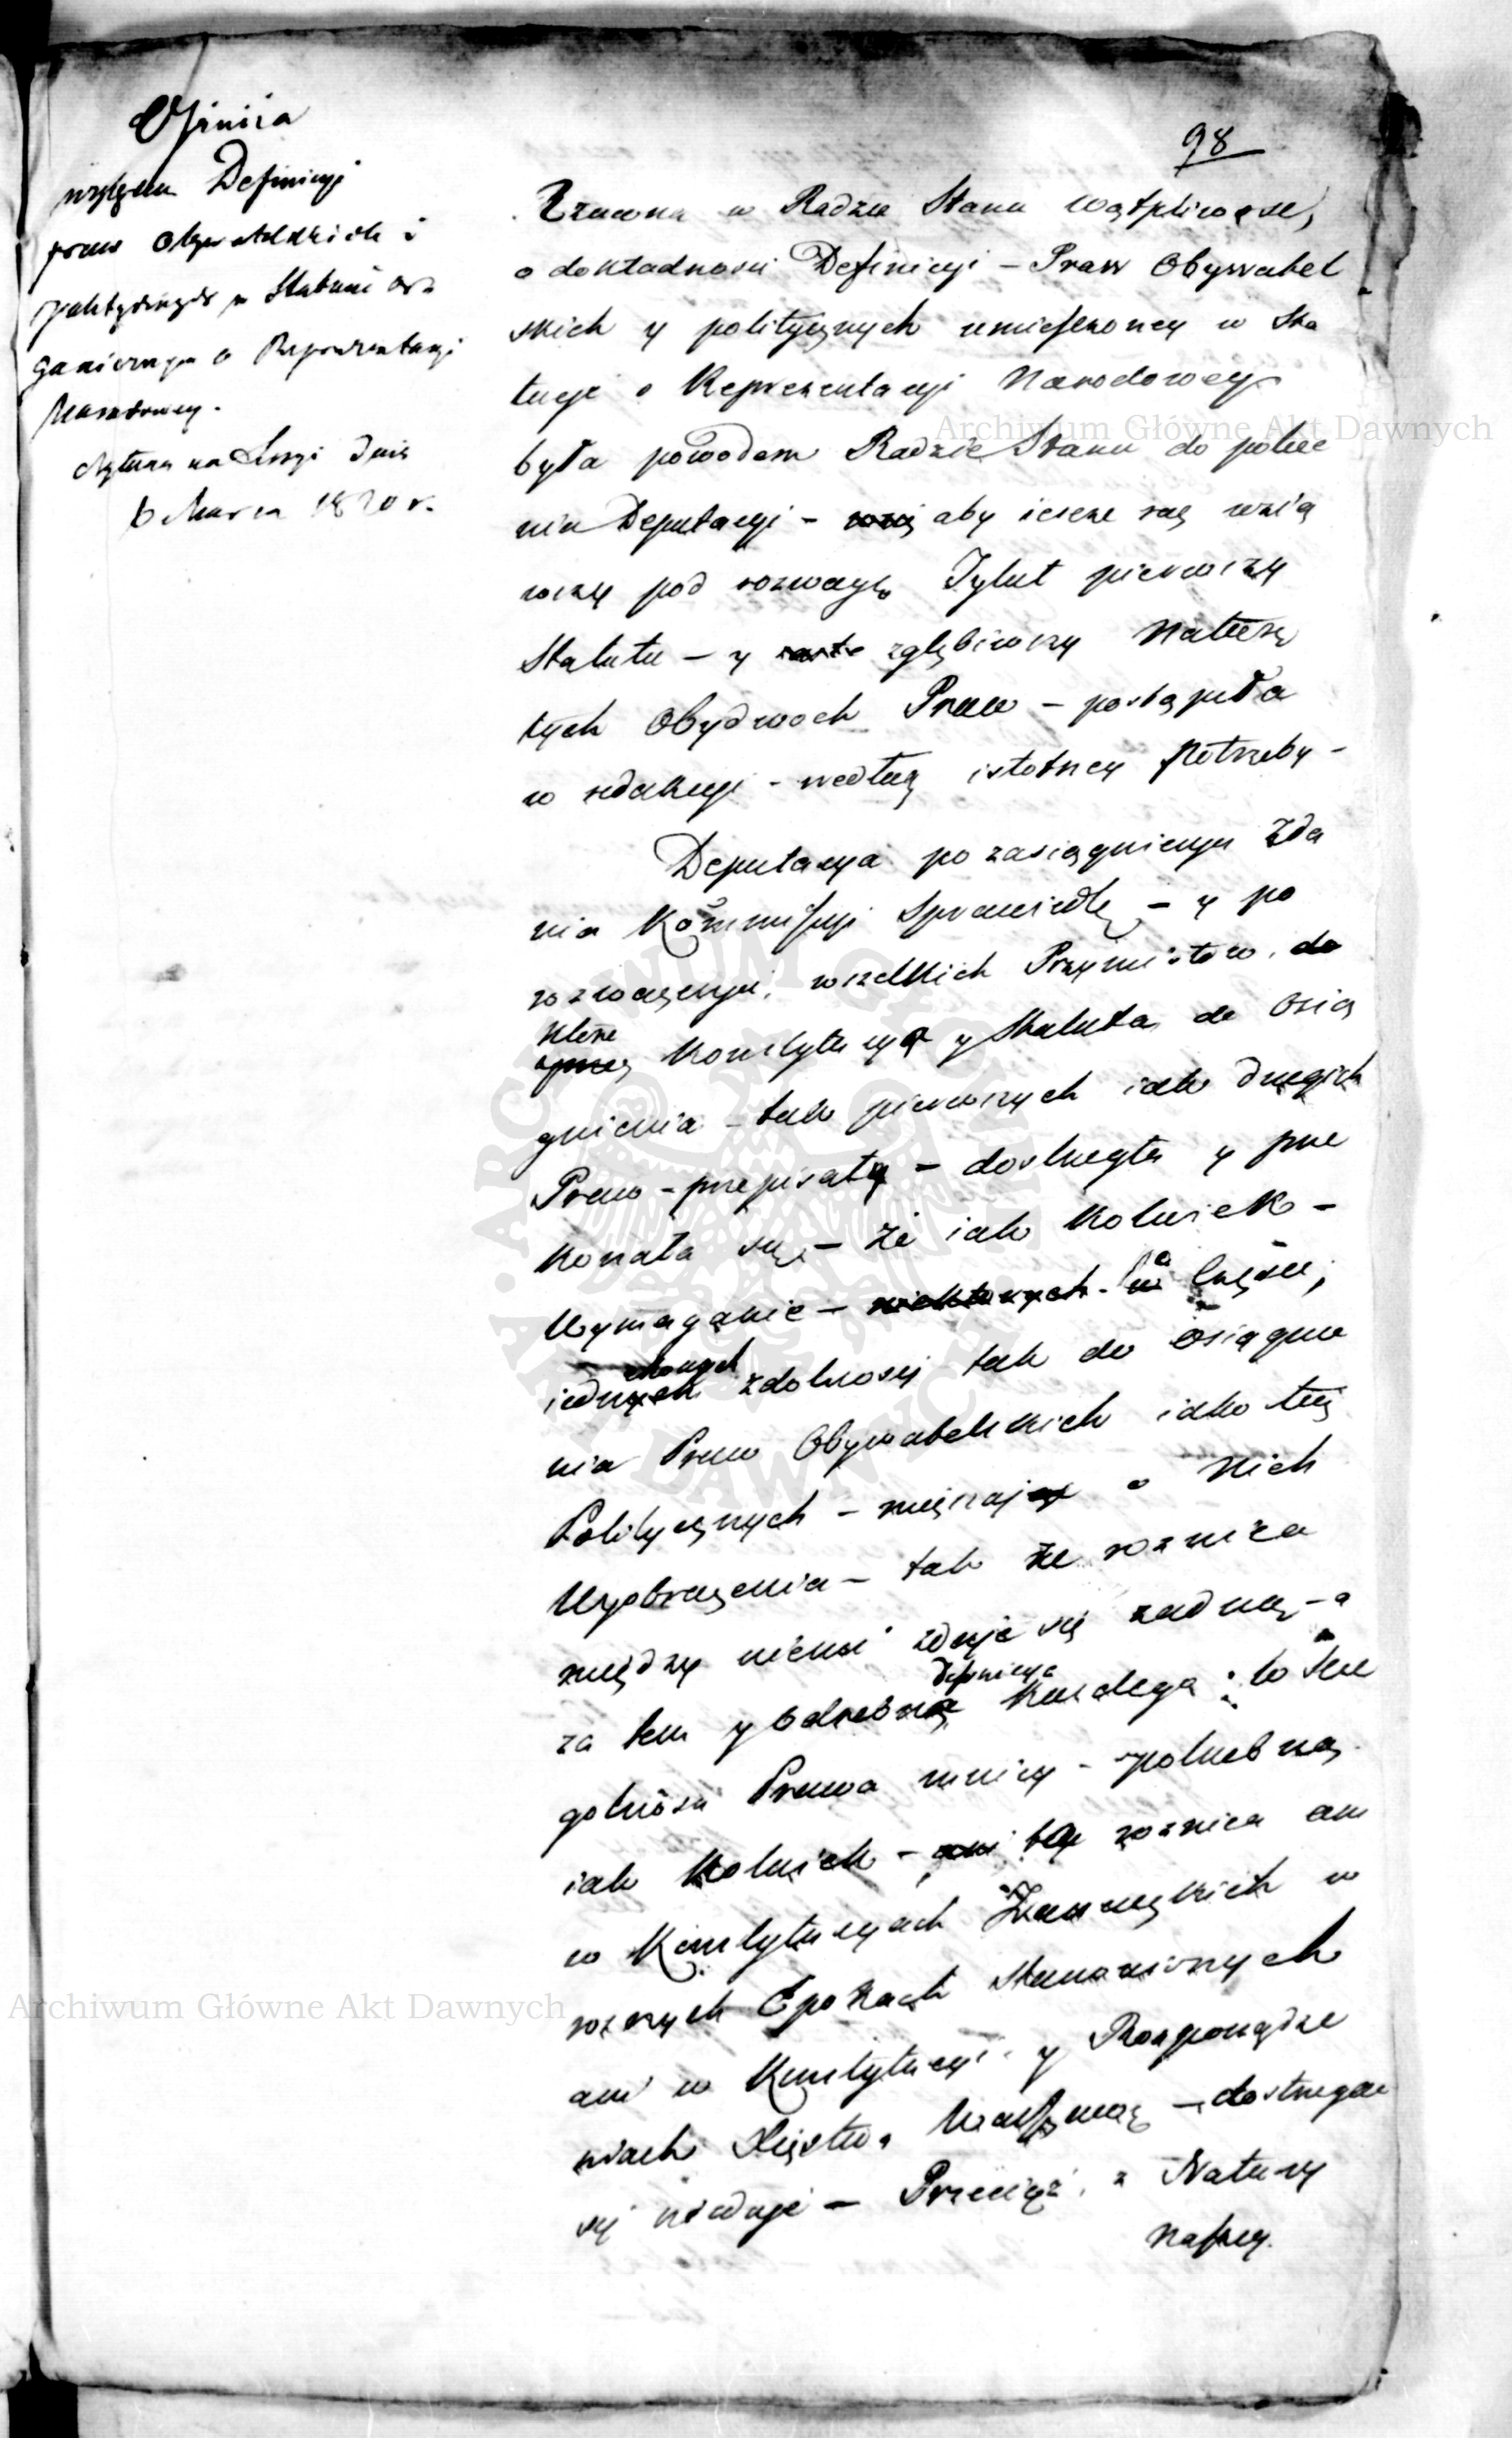 98
Opiniia
względem Definicyi
praw Obywatelskich i
politycznych w Statucie Or
ganicznym o Reprezentacyi
Narodowey.
czytana na Sessyi Dnia
6 Marca 1820 r.
w Radzie Stanu wątpliwość,
o dokładności Definicyi – Praw Obywatel
skich y politycznych umieszczoney w Sta
tucie o Reprezentacyi Narodowey
była powodem Radzie Stanu do polece
nia Deputacyi – aby ieszcze raz wzią
wszy pod rozwagę Tytuł pierwszy
Statutu – y zgłębiwszy Naturę
tych Obydwóch Praw – postąpiła
w redakcyi – według istotney potrzeby –
Deputacya po zasiągnieniu Zda
nia Kommissyi Sprawiedl – y po
rozważeniu, wszelkich Przymiotów, do
które
Konstytucya y Statuta do Osią
gnienia – tak pierwszych iak drugich
Praw – przepisały – dostrzegła y prze
konała się – że iak kolwiek –
Wymaganie – niektórych – w części,
iednych zdolności tak do osiągnie
nia Praw Obywatelskich iako też
Politycznych – mięszają o Nich
Wyobrażenia – tak że roznica
między niemi zdaje się żadną – a
Definicya
za tem y Odrębna każdego w szcze
gólności Prawa mniey – potrzebną
iak kolwiek – ani ta roznica ani
w Konstytucyach Francuzkich w
roznych Epokach Stanowionych
ani w Konstytucyi y Rozporządze
niach Xięstwa Warszaw – dostrzegać
się niedaje – Przecież, z Natury
Naszey.
Archiwum Główne Akt Dawnych
Archiwum Główne Akt Dawnych
ARCHIWUM GŁÓWNE AKT DAWNYCH